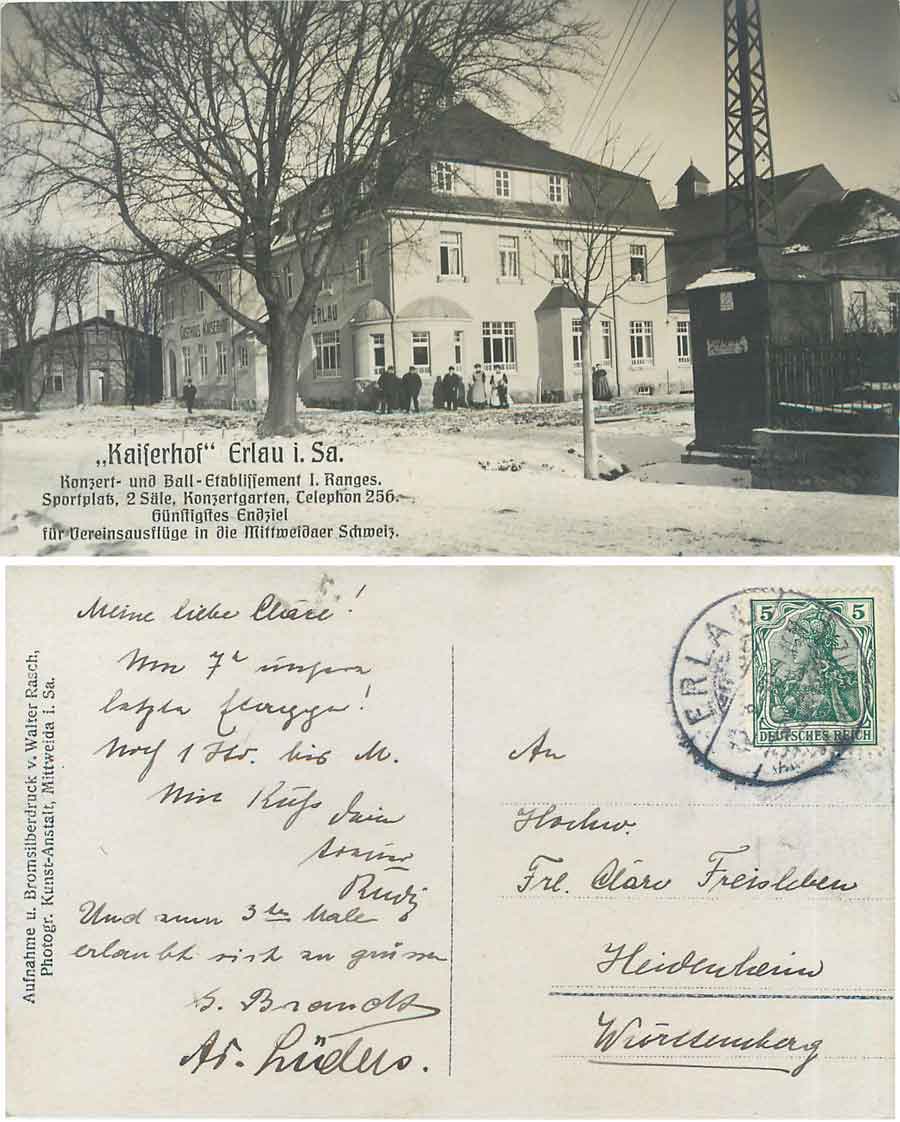 GASTHAUS KAISERHOF
ERLAU
„Kaiſerhof" Erlau i. Sa.
Konzert- und Ball-Etabliſſement I. Ranges.
Sportplatz, 2 Säle, Konzertgarten, Telephon 256.
Günſtigſtes Endziel
für Vereinsausflüge in die Mittweidaer Schweiz.
Aufnahme u. Bromsilberdruck v. Walter Rasch,
Photogr. Kunst-Anstalt, Mittweida i. Sa.
Meine liebe Cläre!
Um 7h unsere
letzte Etappe!
Noch 1 Std. bis M.
Mit Kuss Dein
treuer
Rudi
Und zum 3ten Male
erlaubt sich zu grüssen
Brandt
Ad. Lüders.
ERLAU
5 5
DEUTSCHES REICH
An
Hochw.
Frl. Cläre Freisleben
Heidenheim
Württemberg